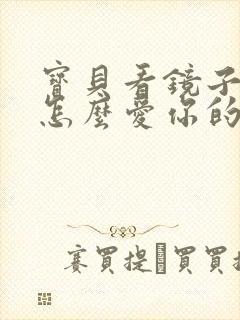 寶貝看鏡子
怎麼愛你的
賽買提·買買提